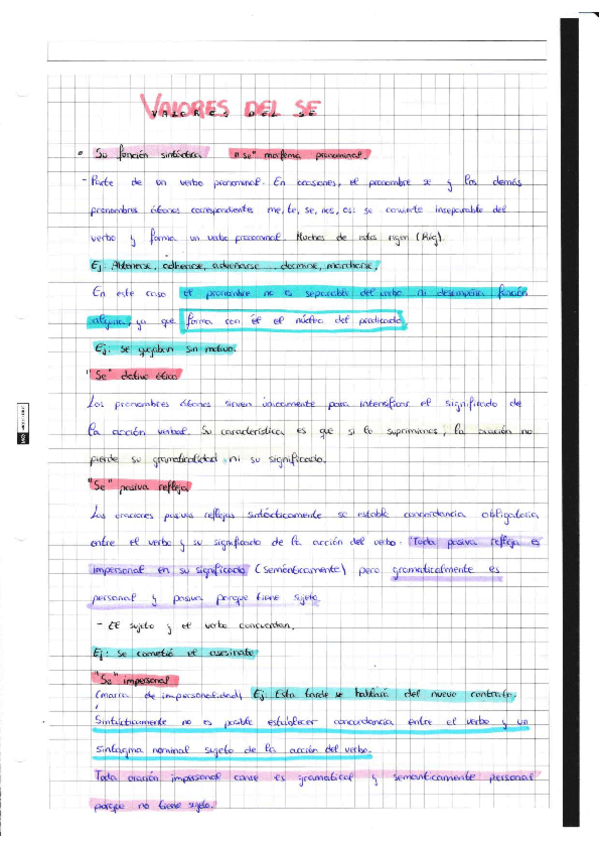 VALORES DEL SE
VALORES DEL SE
• Su función sintáctica "se" morfema pronominal.
- Parte de un verbo pronominal. En ocasiones, el pronombre se y los demás
pronombres átonos correspondientes me, te, se, nos, os: se convierte inseparable del
verbo y forma un verbo pronominal. Muchos de estos rigen (Rég).
Ej: Abtenerse, adherirse, adueñarse... dormirse, marcharse.
En este caso el pronombre no es separable del verbo ni desempeña función
alguna, ya que forma con él el núcleo del predicado.
Ej: se quejaban sin motivo.
"Se" dativo ético
Los pronombres átonos sirven únicamente para intensificar el significado de
la acción verbal. Su característica es que si lo suprimimos, la oración no
pierde su gramaticalidad ni su significado.
"Se" pasiva refleja
Las oraciones pasivas reflejas sintácticamente se estable concordancia obligatoria
entre el verbo y su significado de la acción del verbo. Toda pasiva refleja es
impersonal en su significado (semánticamente) pero gramaticalmente es
personal y pasiva porque tiene sujeto.
- El sujeto y el verbo concuerdan.
Ej: Se cometió el asesinato
"Se" impersonal
(marca de impersonalidad) Ej: Esta tarde se hablará del nuevo contrato.
Sintácticamente no es posible establecer concordancia entre el verbo y un
sintagma nominal sujeto de la acción del verbo.
Toda oración impersonal es gramatical y semánticamente personal
porque no tiene sujeto.